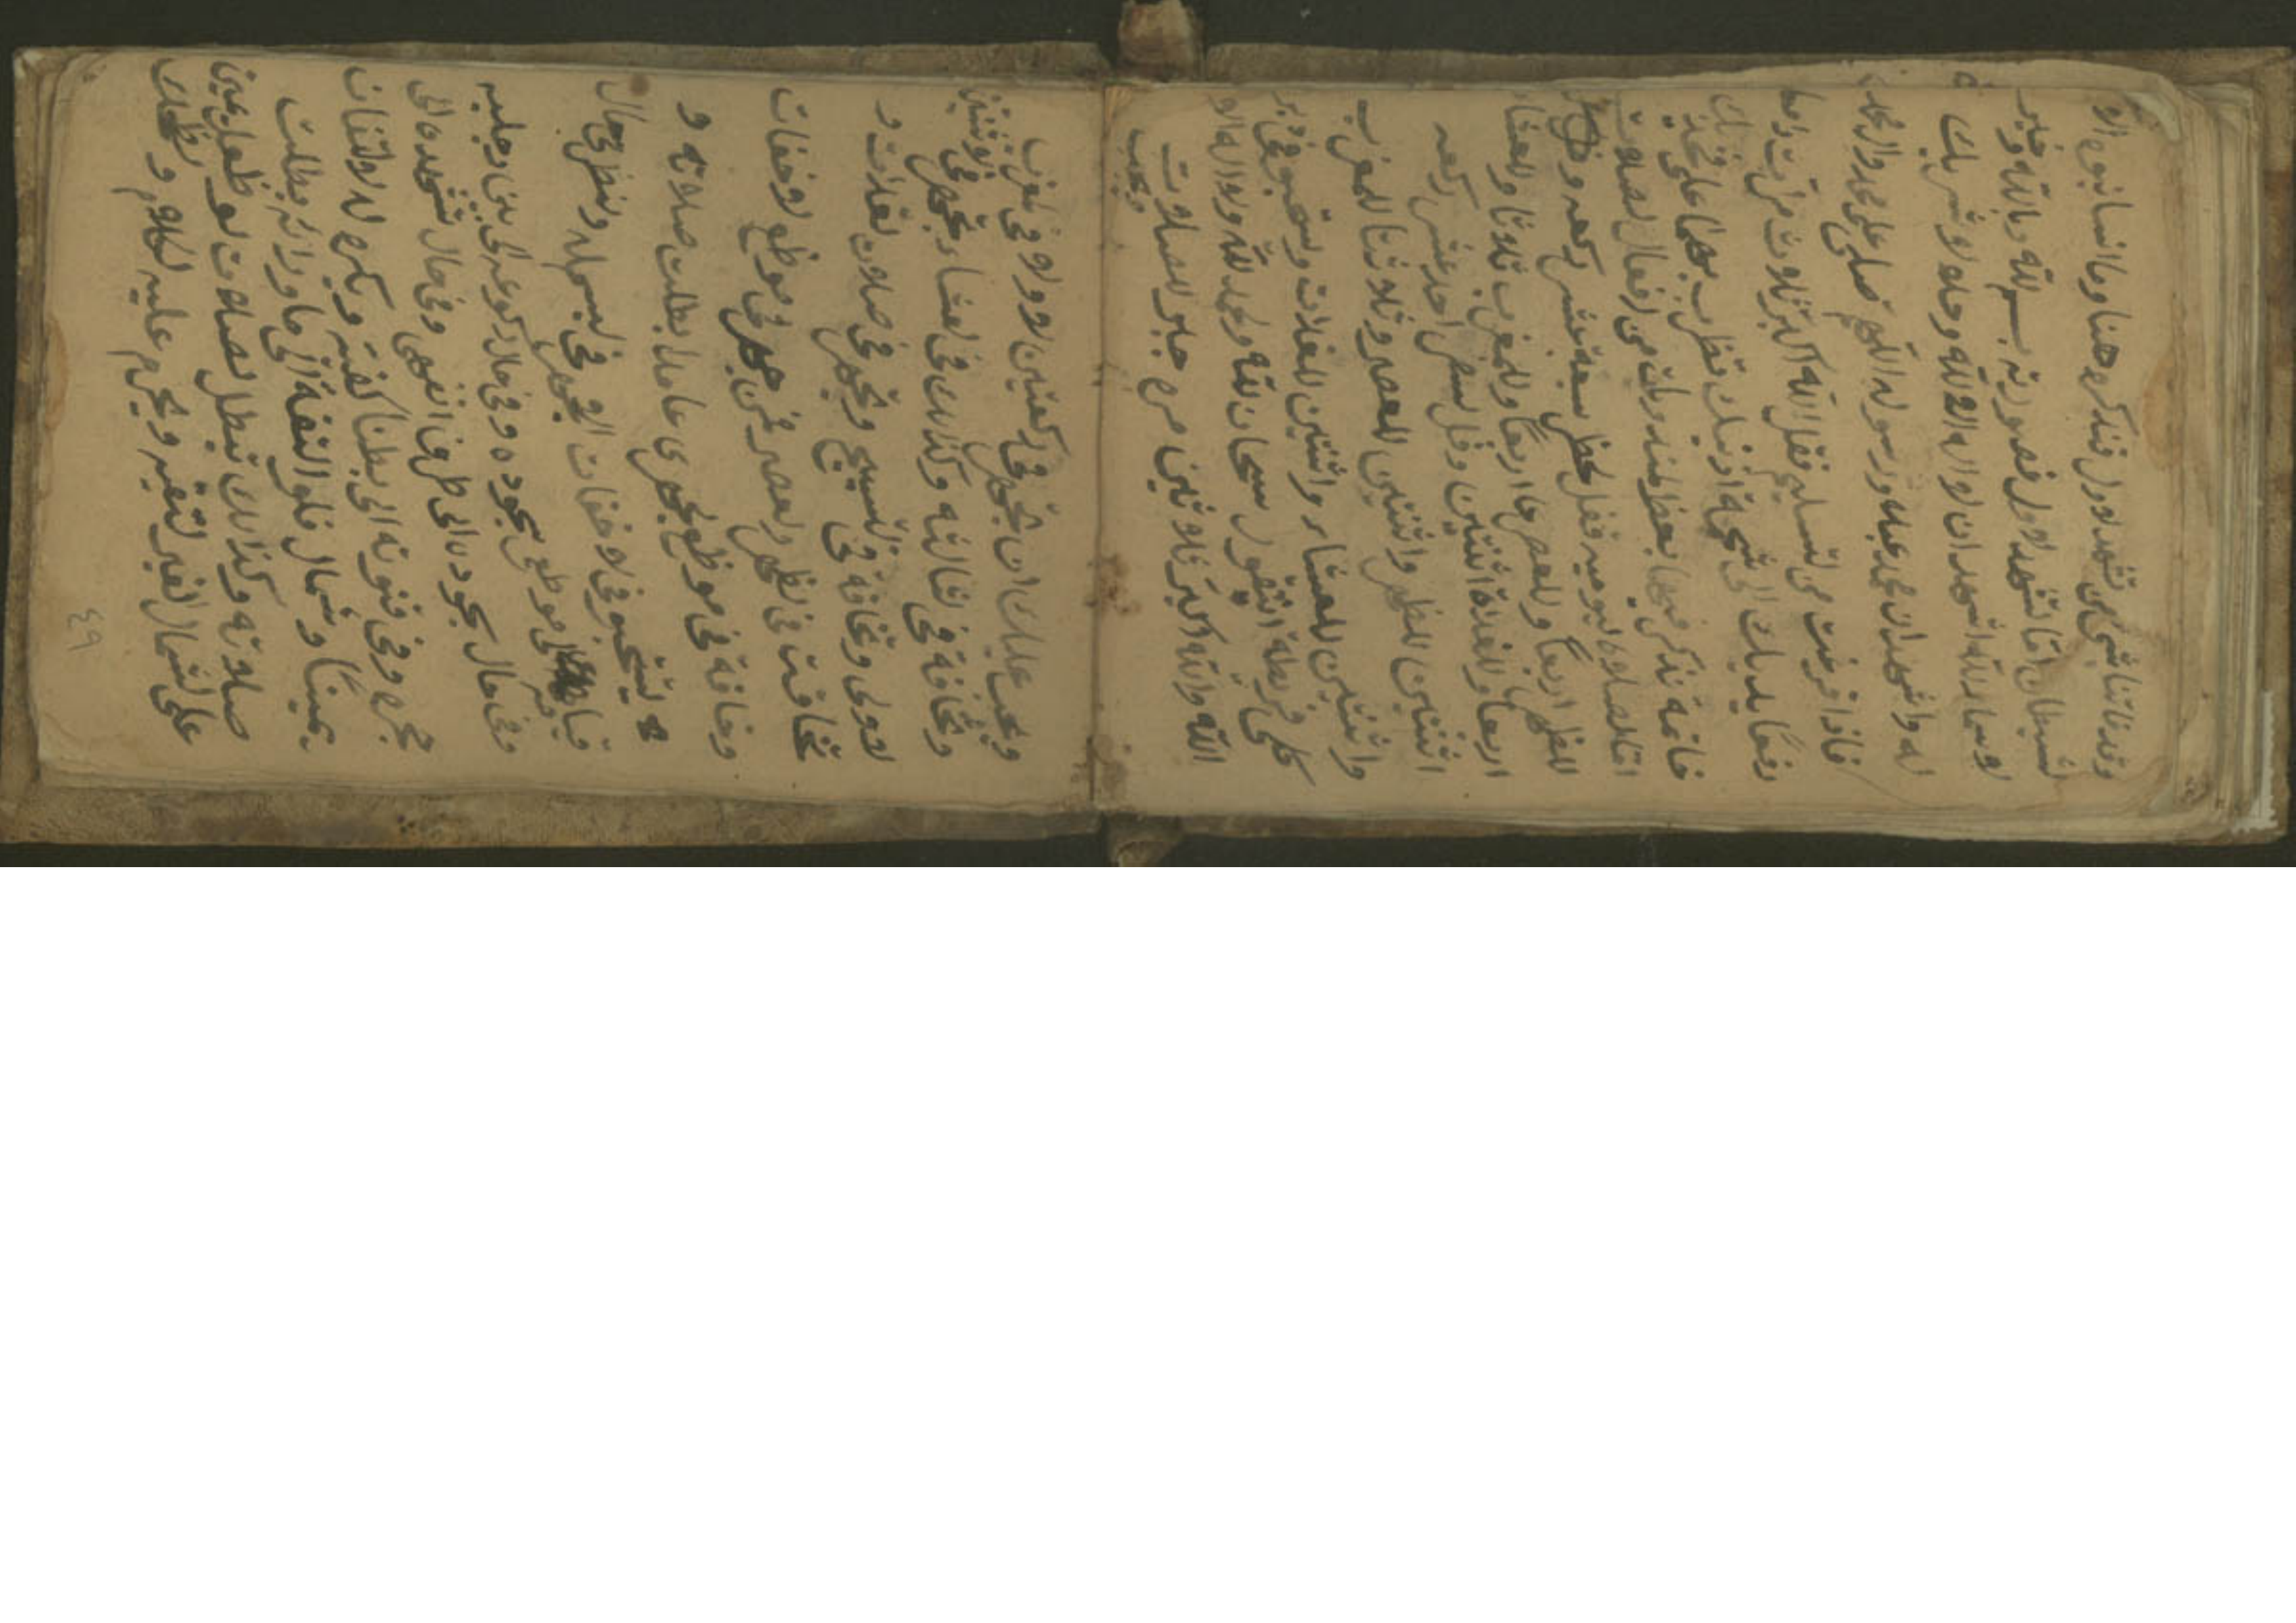 وقد فاتنا شيء من تشهد الاول فنذكره هنا وما انسانيه الا
الشيطان اما تشهد الاول فصورته بسم الله وبالله وخير
الاسماء لله اشهد ان لا اله الا الله وحده لا شريك
له واشهد ان محمد عبده ورسوله اللهم صلي على محمد وال محمد
فاذا فرغت من تسليم فقل الله اكبر ثلاث مرات رافعا
رافعا يديك الى شحمة اذنيك تظرب بهما على فخذيك
خاتمة نذكر فيها بعظ مندوبات من افعال الصلوت
اما لصلاة اليومية فقل لحظر سبعة عشر ركعه وهي
للظهر اربعا وللعصر هما اربعا وللمغرب ثلاثا وللعشاء
اربعا وللغداة اثنتين وفي لسفر احد عشر ركعه
اثنتين للظهر واثنتين للعصر وثلاثا للمغرب
واثنتين للعشاء واثنتين للغدات ويستحب في دبر
كل فريظة ان تقول سبحان الله ولحمد لله ولا اله الا
الله والله اكبر ثلاثين مره جبر الصلوت
ويجب
ويجب عليك ان تجهر في ركعتين الاولا في لمغرب
وتخافة في لثالثه وكذلك في لعشاء تجهر في لاوتتين
الاولى وتخافة في لتسبيح وتجهر في صلات لغدات و
تخافت في لظهر ولعصر فمن جهر في موظع لاخفات
وخافة في موظع لجهر عامدا بطلت صلاته و
يستحب في لاخفات الجهر في لبسمله ولنظر في حال
قيامه الى موظع سجوده وفي حال ركوعه الى بين رجليه
وفي حال سجوده الى طرف انفه وفي حال تشهده الى
حجره وفي قنوته الى بطنا كفيه ويكره له لالتفات
يمينا وشمال فلو التفة الى ما ورائه بطلت
صلاته وكذلك تبطل لصلات لو ظع ليمين
على لشمال لغير لتقيه ويحرم عليه لكلام و
٤٩